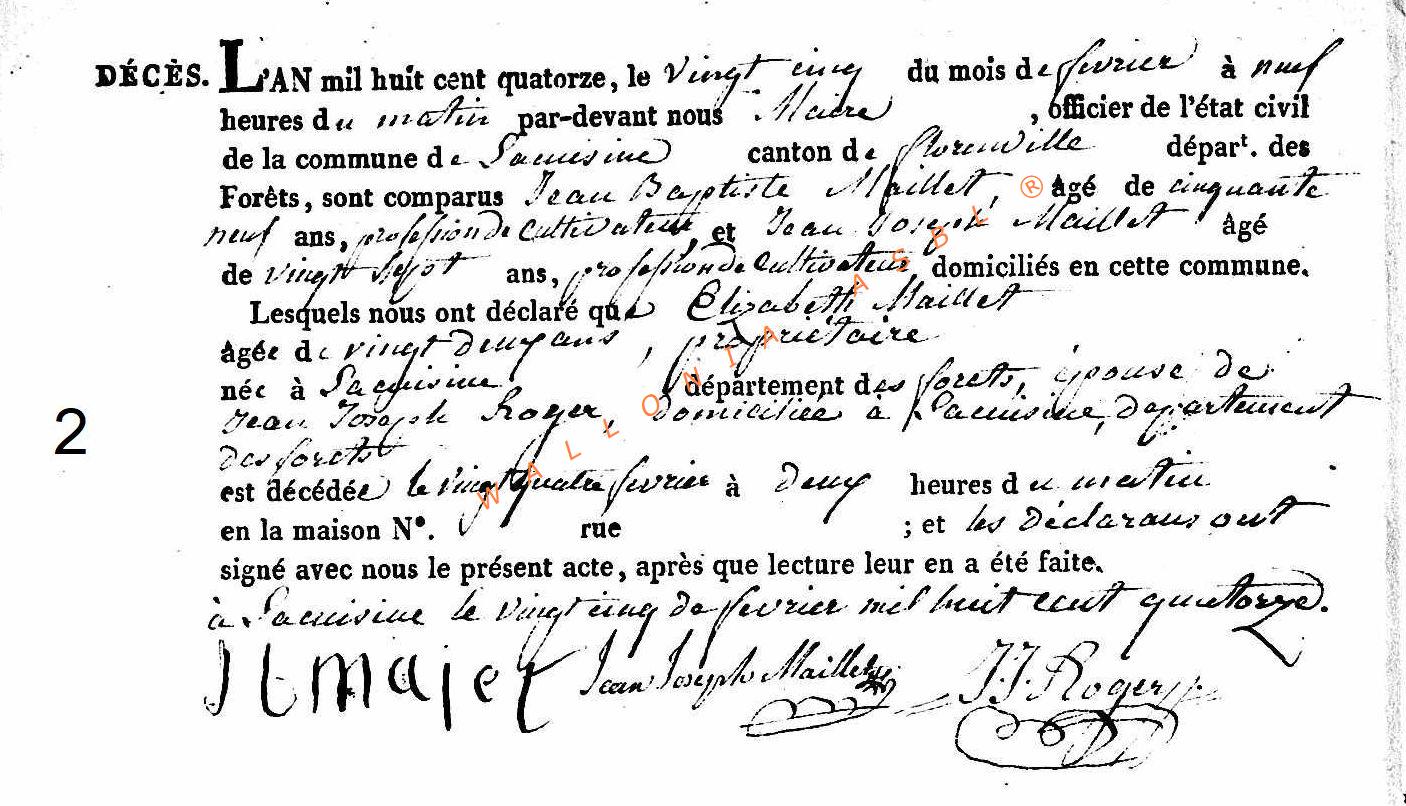 DÉCÈS. L'AN mil huit cent quatorze, le vingt cinq du mois de fevrier à neuf
heures du matin par-devant nous Maire , officier de l'état civil
de la commune de Lacuisine canton de florenville départ. des
Forêts, sont comparus Jean Baptiste Maillet, âgé de cinquante
neuf ans, profession de cultivateur, et Jean Joseph Maillet âgé
de vingt sept ans, profession de cultivateur, domiciliés en cette commune.
Lesquels nous ont déclaré que Elizabeth Maillet
âgée de vingt deux ans, propriétaire
née à Lacuisine département des forets, épouse de
Jean Joseph Roger, domiciliée à Lacuisine, departement
des forets
2
est décédée le vingt quatre fevrier à deux heures du matin
en la maison N°. rue ; et les déclarans ont
signé avec nous le présent acte, après que lecture leur en a été faite.
à Lacuisine le vingt cinq de fevrier mil huit cent quatorze.
Jean Joseph Maillet J. J. Roger
WALLONIA ASBL ®